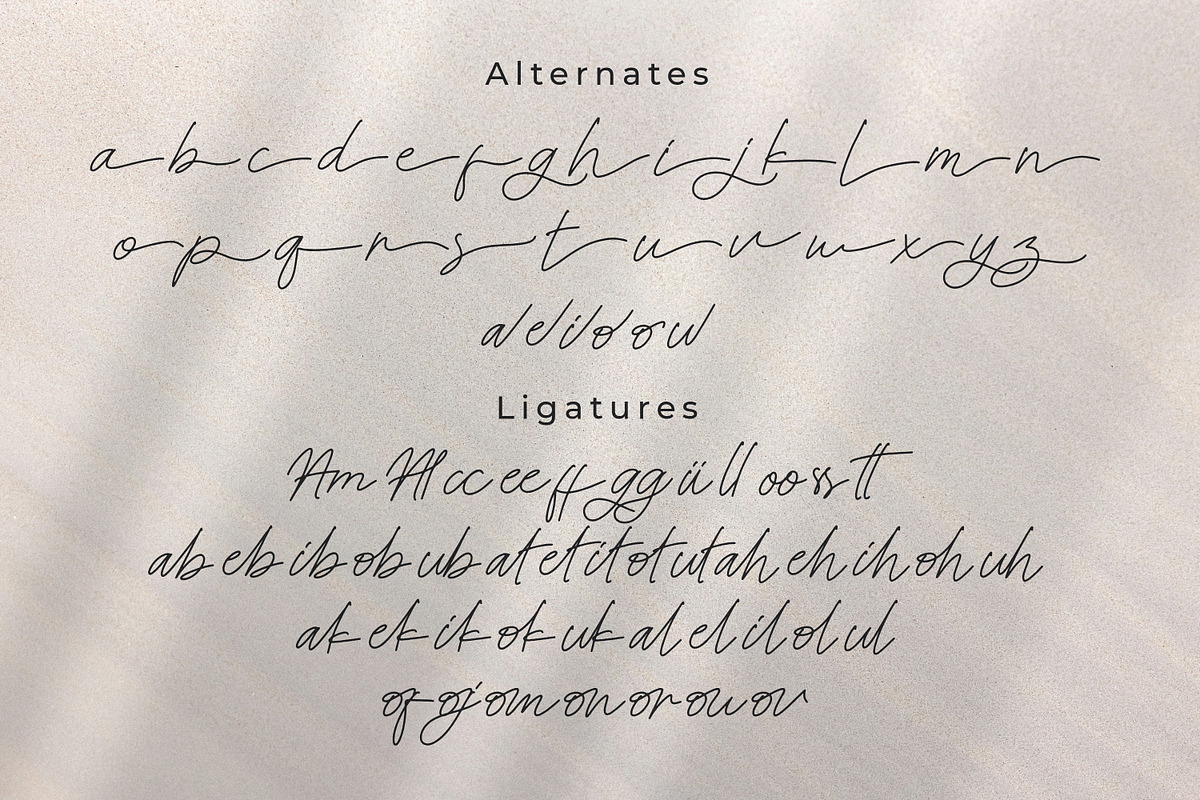 Alternates
a b c d e f g h i j k l m n
o p q r s t u v w x y z
a e i o o u
Ligatures
Am Al cc ee ff gg ii ll oo ss tt
ab eb ib ob ub at et it ot ut ah eh ih oh uh
ak ek ik ok uk al el il ol ul
of oj om on or ou ov